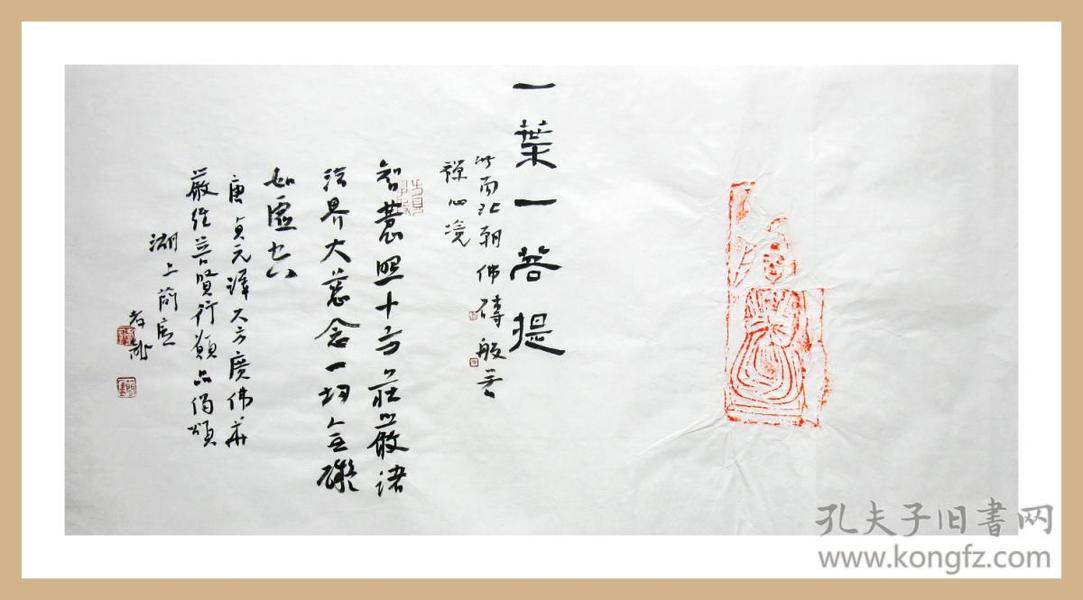 一葉一菩提
此南北朝佛磚般若
禪心境
智慧照十方莊嚴諸
法界大慈念一切无礙
如虛空
唐貞元譯大方廣佛華
嚴經普賢行願品偈頌
湖上
孔夫子旧書网
www.kongfz.com